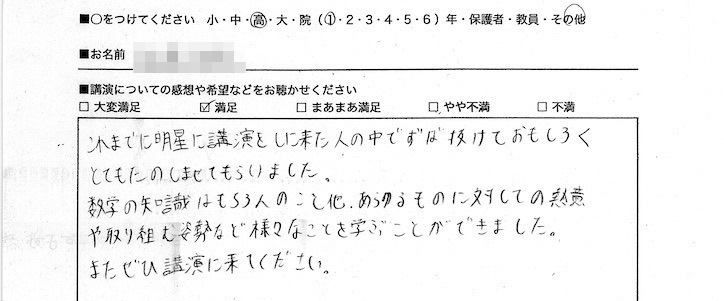 ■○をつけてください 小・中・高・大・院（1・2・3・4・5・6）年・保護者・教員・その他
■お名前
■講演についての感想や希望などをお聴かせください
□ 大変満足 ☑ 満足 □ まあまあ満足 □ やや不満 □ 不満
これまでに明星に講演をしに来た人の中でずば抜けておもしろく
とてもたのしませてもらいました。
数学の知識はもちろん人のこと他、あらゆるものに対しての熱意
や取り組む姿勢など様々なことを学ぶことができました。
またぜひ講演に来てください。